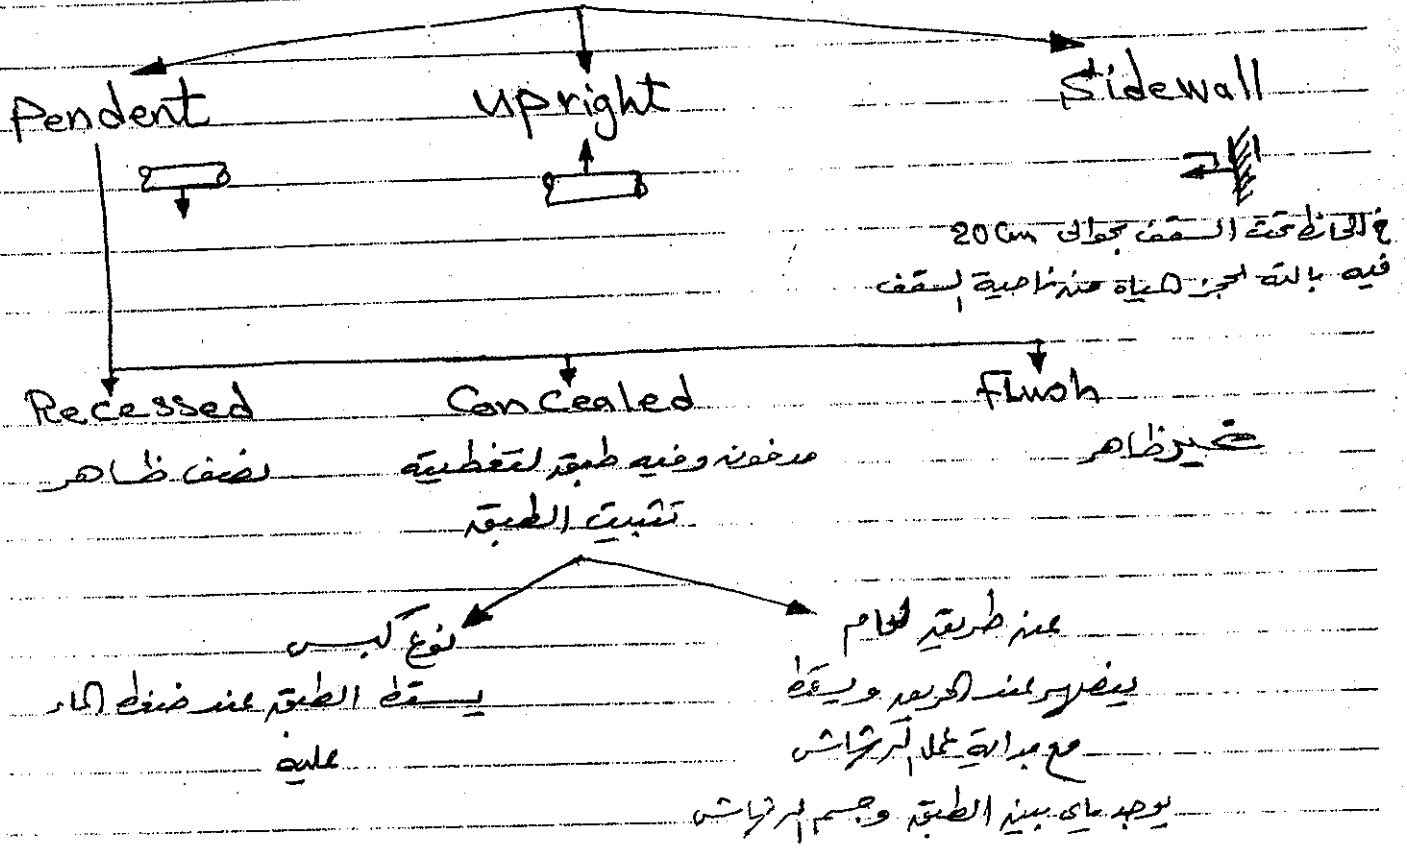 Pendent
upright
Sidewall
في الحائط تحت السقف بحوالى 20 cm
فيه بالته لحجز المياه من ناحية السقف
Recessed
Concealed
Flush
نصف ظاهر
مدفون وفيه طبق لتغطيته
غير ظاهر
تثبيت الطبق
نوع كبس
يسقط الطبق عند ضغط الماء
عليه
عن طريق لحام
ينصهر عند الحريق ويسقط
مع بداية عمل الرشاش
يوجد ياى بين الطبق وجسم الرشاش